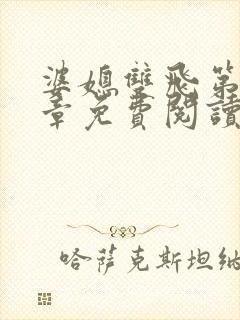 婆媳雙飛第
章免費閱讀
哈薩克斯坦納